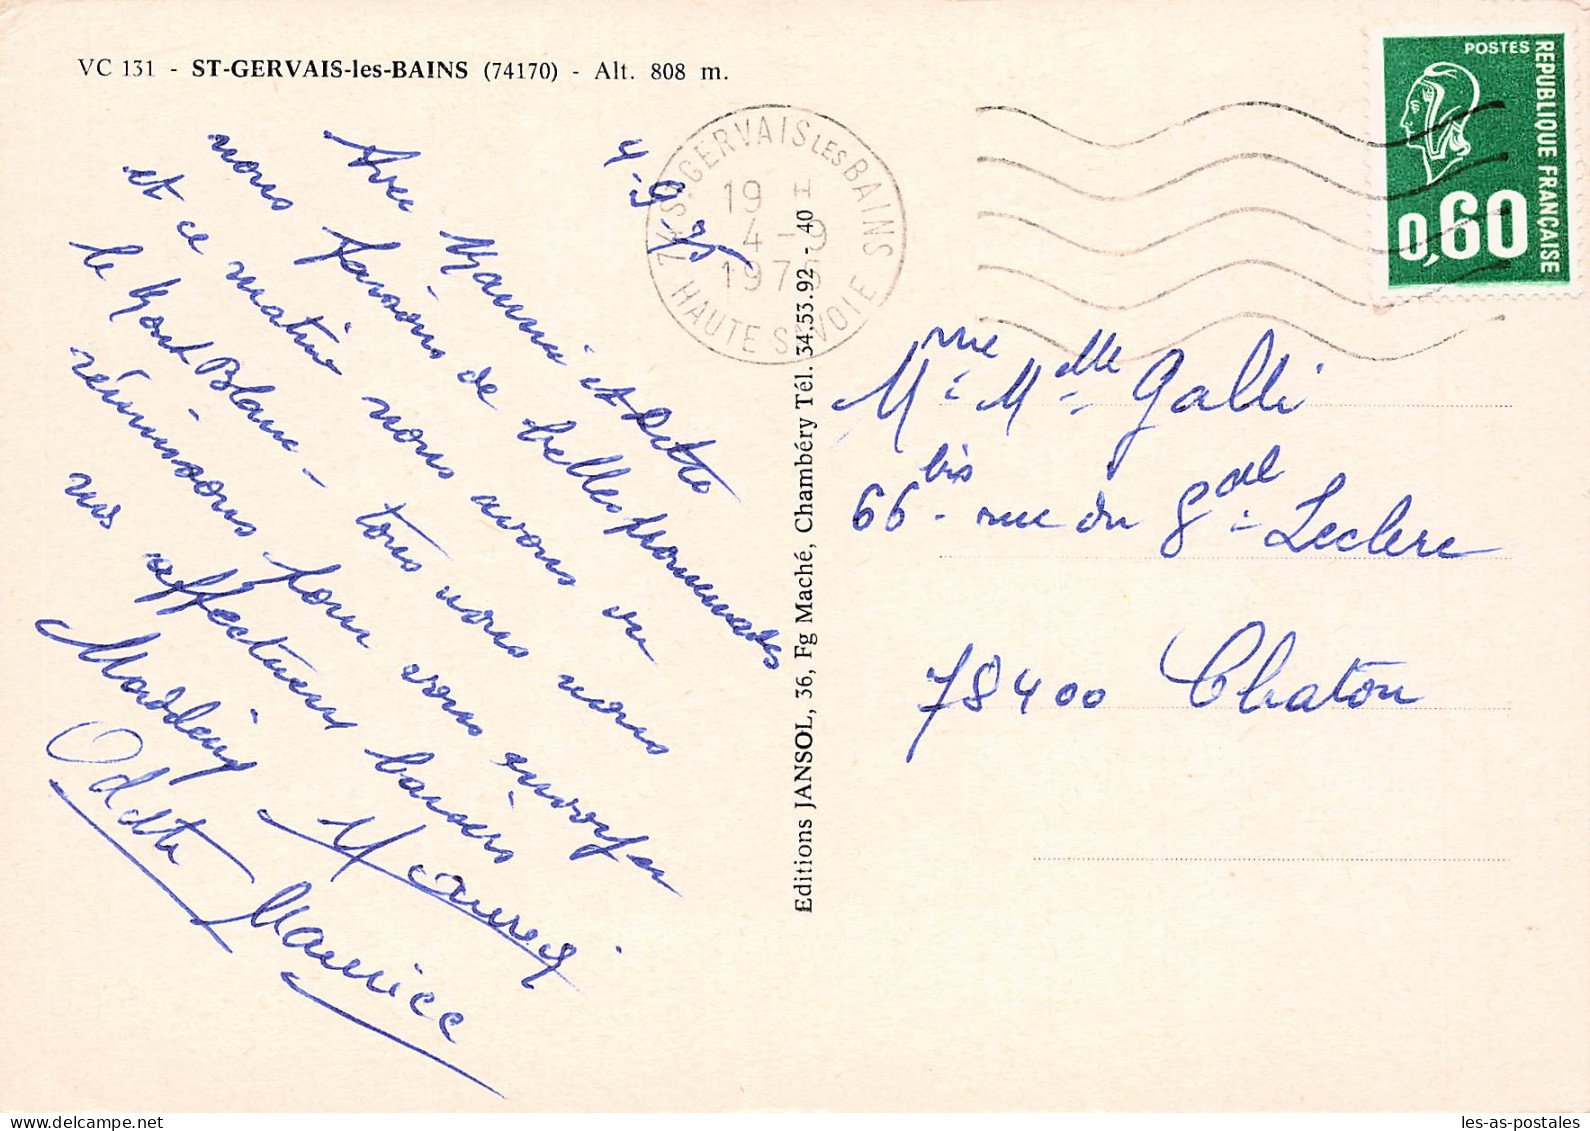 VC 131 - ST-GERVAIS-les-BAINS (74170) - Alt. 808 m.
4-9-75
Avec Mamie et Odette
nous faisons de belles promenades
et ce matin nous avons vu
le Mont Blanc - tous nous nous
réunissons pour vous envoyer
nos affectueux baisers
Odette Maurice
74 ST-GERVAIS LES BAINS
19 H
4 -9
1975
HAUTE SAVOIE
POSTES
REPUBLIQUE FRANÇAISE
0,60
Editions JANSOL, 36, Fg Maché, Chambéry Tél. 34.53.92 - 40
Mme - Melle Galli
66 bis - rue du Gdal - Leclerc
78400 Chatou
les-as-postales